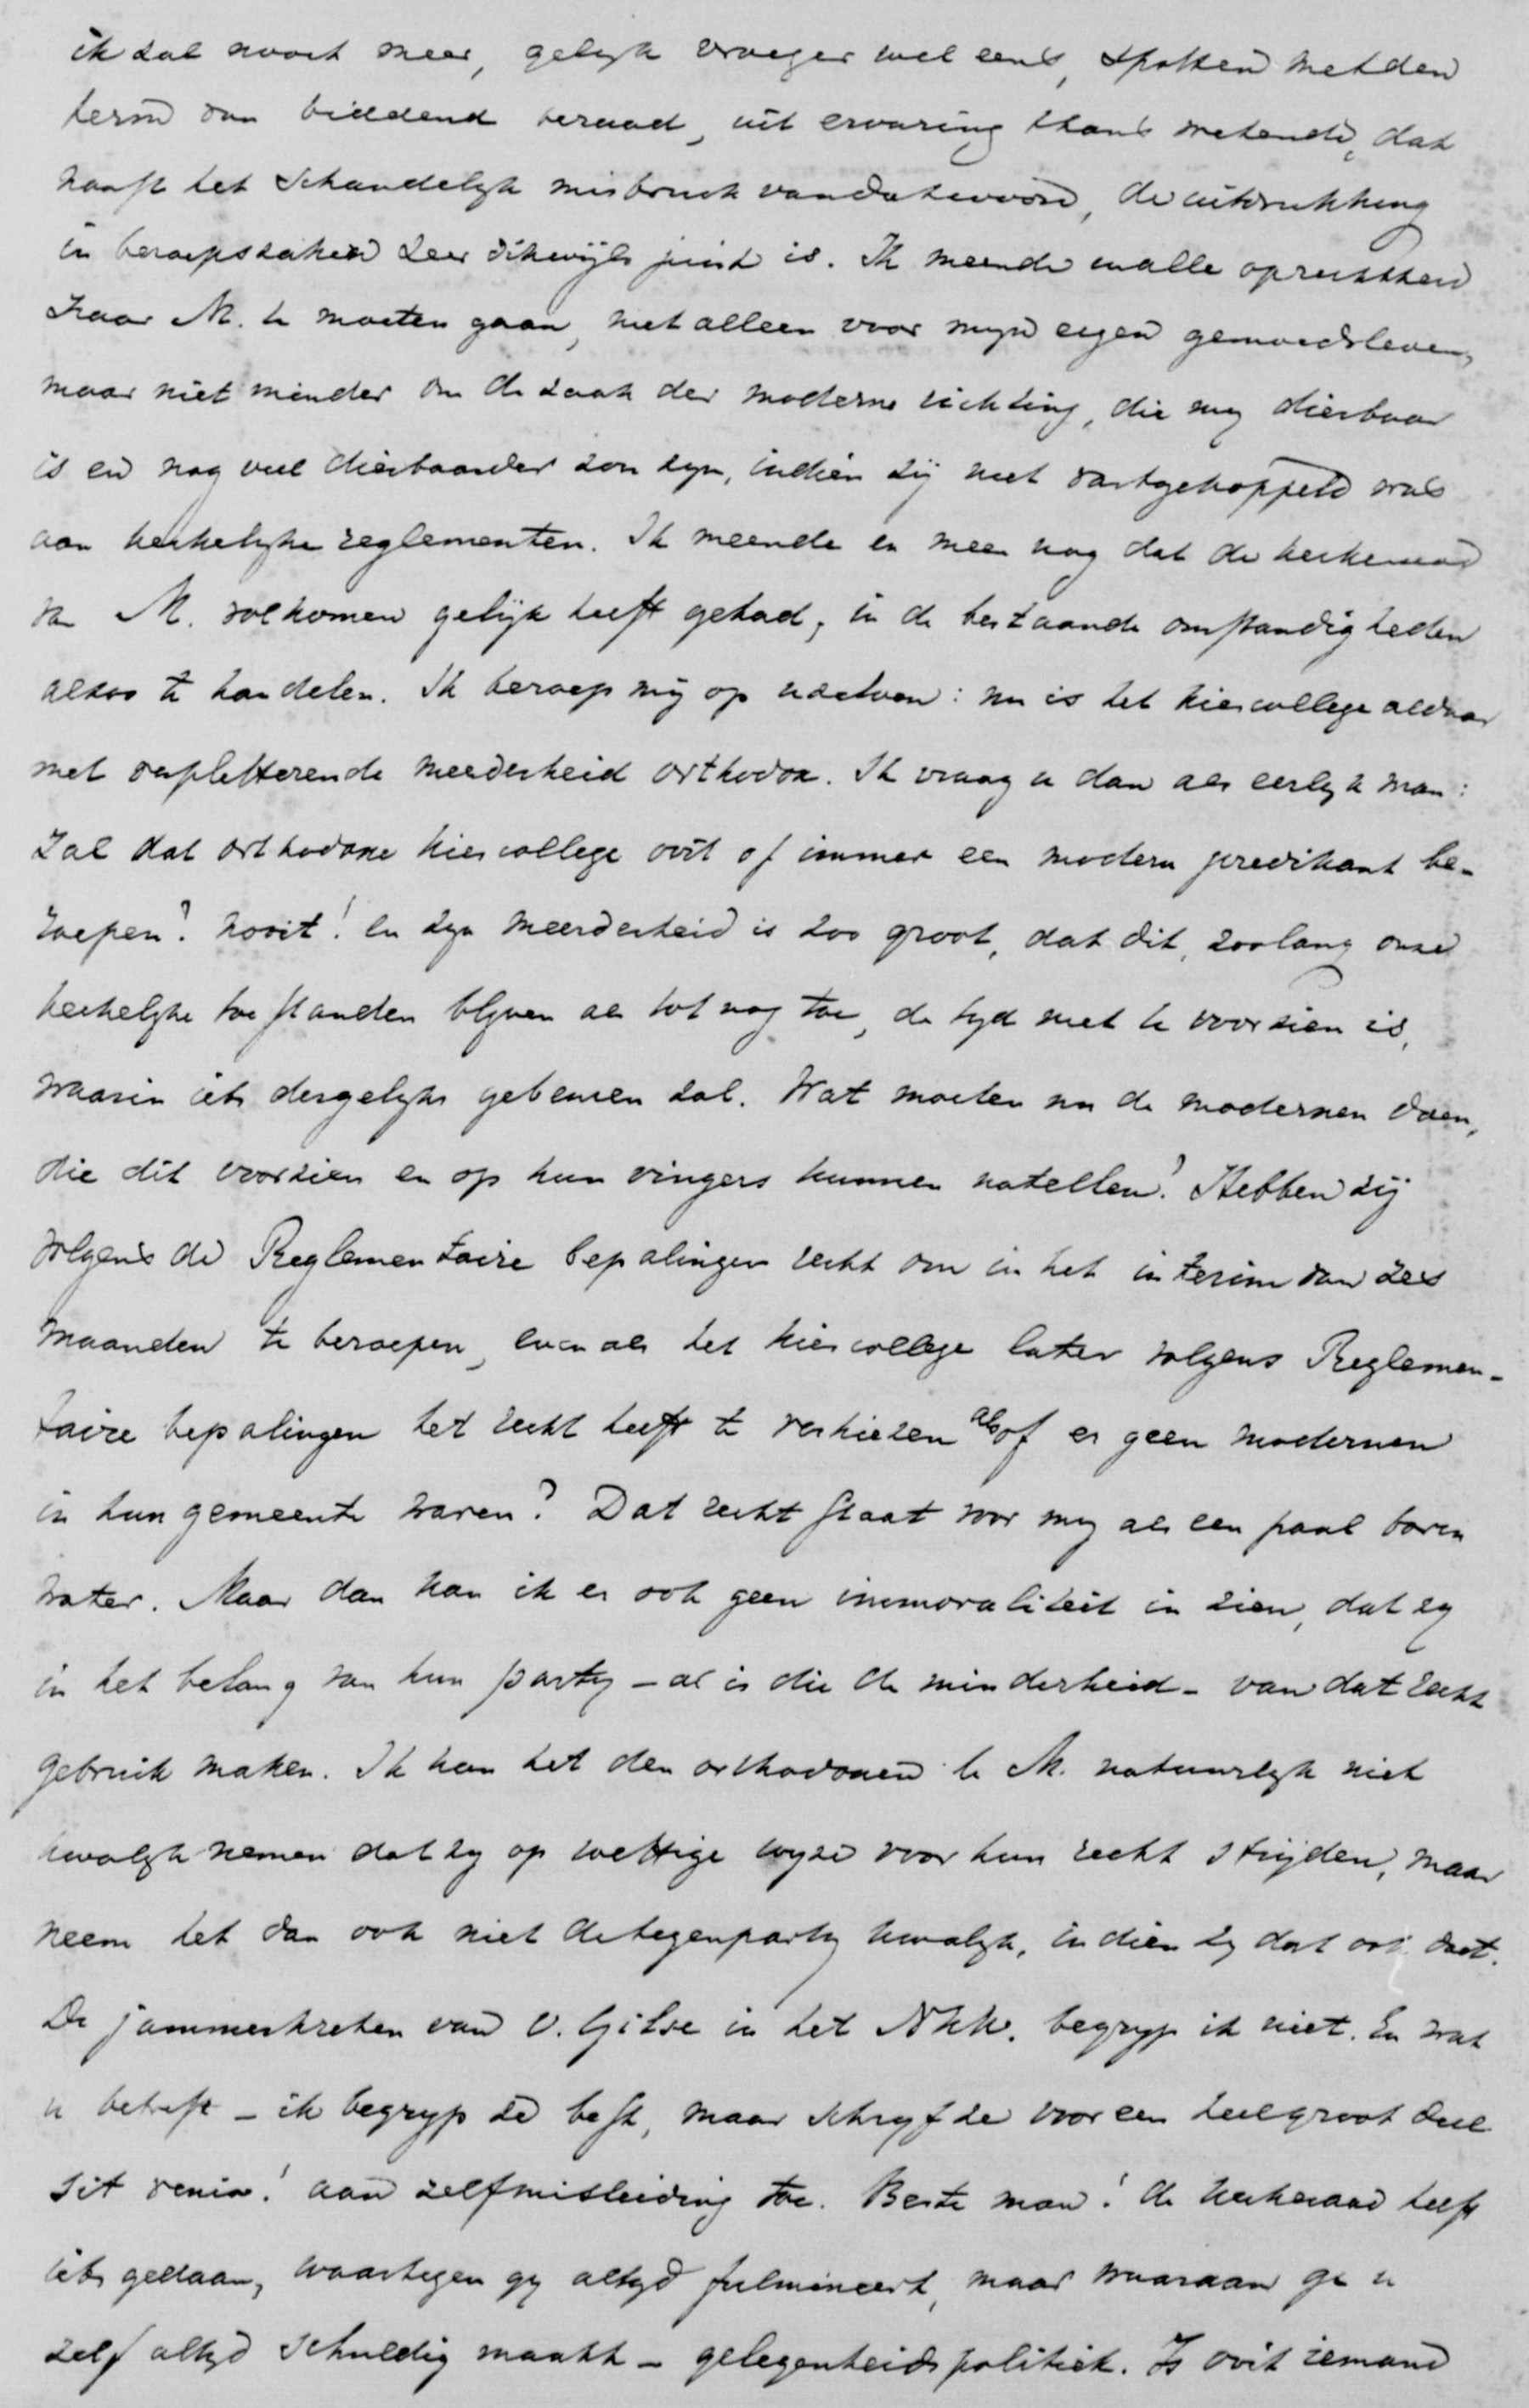 ik zal nooit meer, gelyk vroeger wel eens, spotten met den
term van biddend beraad, uit ervaring thans wetende, dat
naast het schandelyk misbruik van dat woord, de uitdrukking
in beroepszaken zeer dikwijls juist is. Ik meende in alle oprechtheid
naar M. te moeten gaan, niet alleen voor myn eigen gemoedsleven,
maar niet minder om de zaak der moderne richting, die my dierbaar
is en nog veel dierbaarder zou zyn, indien zij niet vastgekoppeld was
aan kerkelyke reglementen. Ik meende en meen nog dat de kerkeraad
van M. volkomen gelijk heeft gehad, in de bestaande omstandigheden
alzoo te handelen. Ik beroep mij op uzelven: nu is het kiescollege aldaar
met verpletterende meerderheid orthodox. Ik vraag u dan als eerlyk man:
Zal dat orthodoxe kiescollege ooit of immer een modern predikant be-
roepen? nooit! En zyn meerderheid is zoo groot, dat dit, zoolang onze
kerkelyke toestanden blyven als tot nog toe, de tyd niet te voorzien is,
waarin iets dergelyks gebeuren zal. Wat moeten nu de modernen doen,
die dit voorzien en op hun vingers kunnen natellen? Hebben zij
volgens de Reglementaire bepalingen recht om in het interim van zes
maanden te beroepen, even als het kiescollege later volgens Reglemen-
taire bepalingen het recht heeft te verkiezen alsof er geen modernen
in hun gemeente waren? Dat recht staat voor my als een paal boven
water. Maar dan kan ik er ook geen immoraliteit in zien, dat zy
in het belang van hun party - al is die de minderheid - van dat recht
gebruik maken. Ik kan het den orthodoxen te M. natuurlyk niet
kwalyk nemen dat zy op wettige wyze voor hun recht strijden, maar
neem het dan ook niet de tegenparty kwalyk, indien zy dat ook doet.
De jammerkreten van v. Gilse in het Nkk. begryp ik niet. En wat
u betreft - ik begryp ze best, maar schryf ze voor een heel groot deel
sit venia! aan zelfmisleiding toe. Beste man! de kerkeraad heeft
iets gedaan, waartegen gy altyd fulmineert, maar waaraan ge u
zelf altyd schuldig maakt - gelegenheidspolitiek. Is ooit iemand